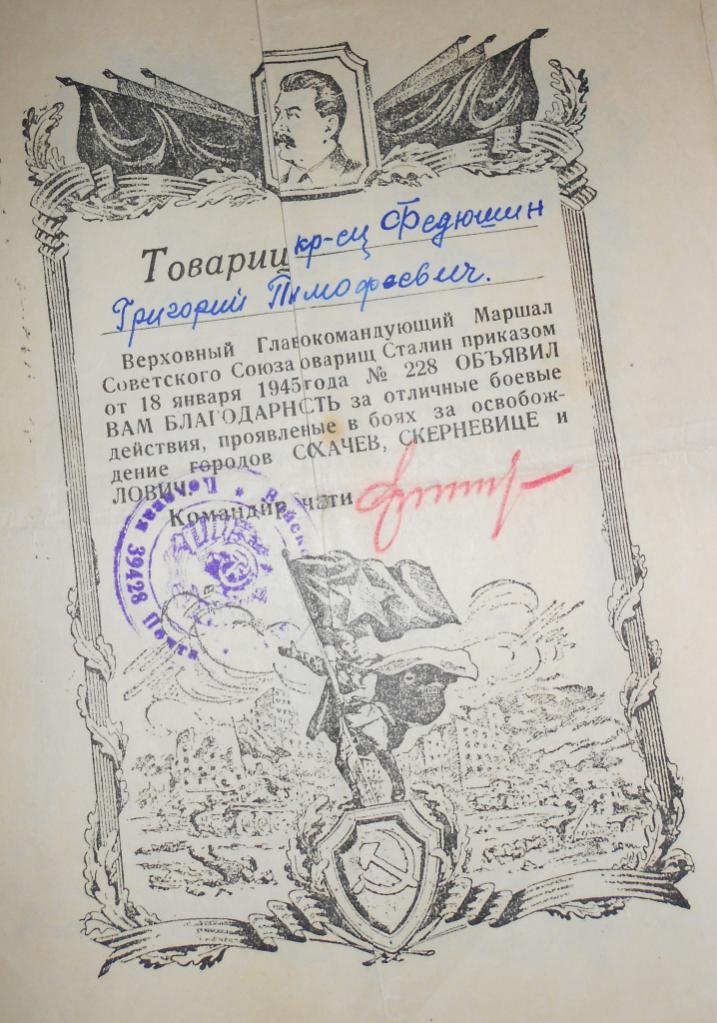 Товарищ кр-ец Федюшин
Григорий Тимофеевич.
Верховный Главокомандующий Маршал
Советского Союза оварищ Сталин приказом
от 18 января 1945 года № 228 ОБЪЯВИЛ
ВАМ БЛАГОДАРНСТЬ за отличные боевые
действия, проявленые в боях за освобож-
дение городов СОХАЧЕВ, СКЕРНЕВИЦЕ и
ЛОВИЧ.
Командир чати
Полевая Почта 39428